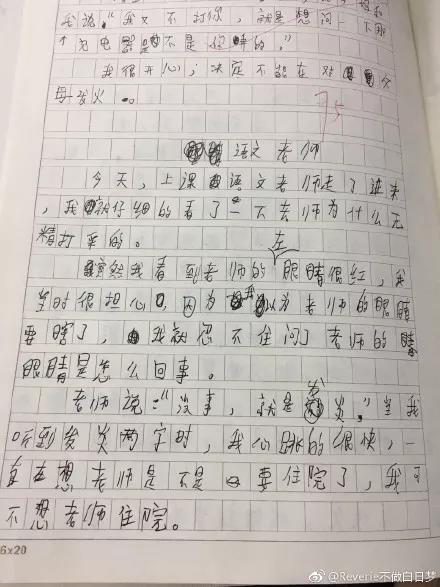 我说:"我又不打你,就是想问一下那
个充电器是不是你的。"
我很开心,决定不能在对父
母发火。
75
语文老师
今天,上课语文老师走了进来
,我就仔细的看了一下老师为什么无
精打采的。
突然我看到老师的左眼睛很红,我
当时很担心,因为我以为老师的眼睛
要瞎了,我就忍不住问了老师的
眼睛是怎么回事。
老师说:"没事,就是发炎。"当我
听到发炎两字时,我心跳的很快,一
直在想老师是不是要住院了,我可
不想老师住院。
6x20
@Reverie不做白日梦